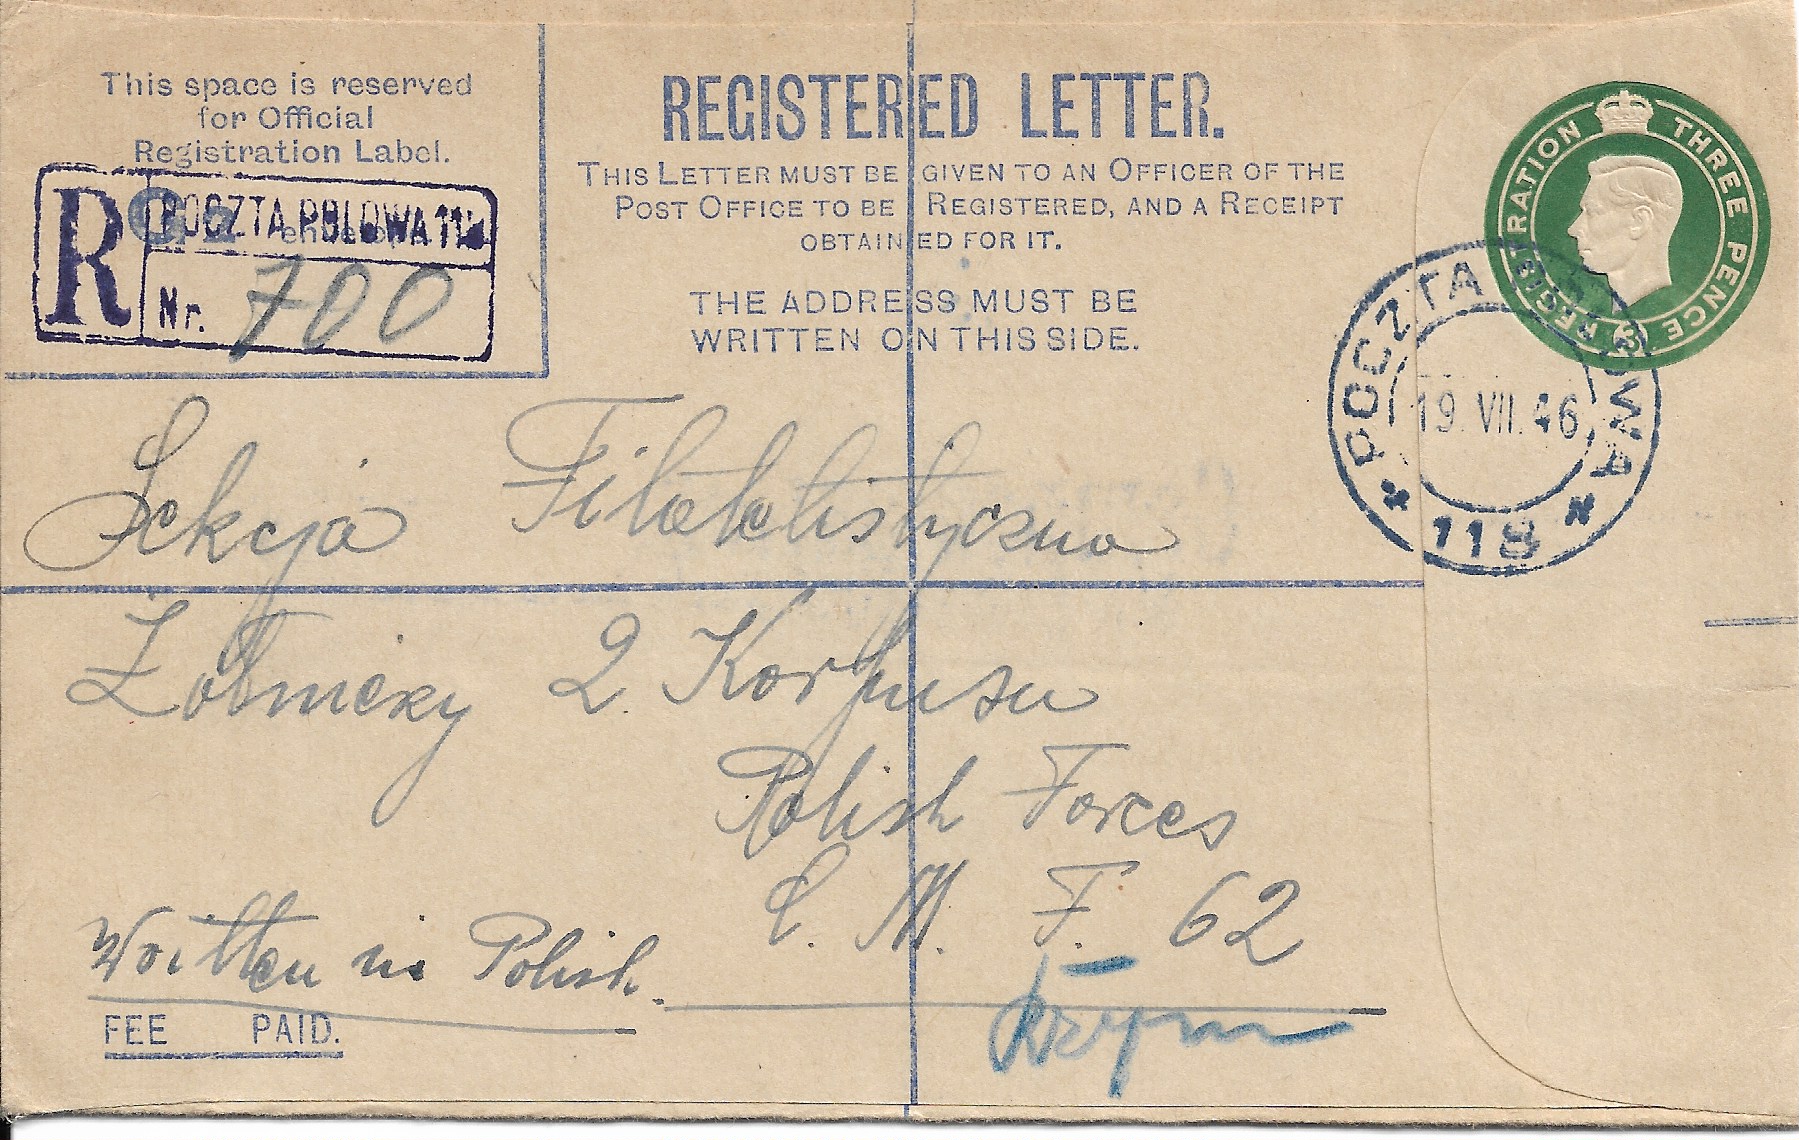 This space is reserved
for Official
Registration Label.
R
POCZTA POLOWA 118
Nr. 700
REGISTERED LETTER.
THIS LETTER MUST BE GIVEN TO AN OFFICER OF THE
POST OFFICE TO BE REGISTERED, AND A RECEIPT
OBTAINED FOR IT.
THE ADDRESS MUST BE
WRITTEN ON THIS SIDE.
REGISTRATION THREE PENCE
POCZTA POLOWA
19. VII. 46
* 118 *
Sekcja Filatelistyczna
Żołnierzy 2. Korpusu
Polish Forces
C. M. F. 62
Written in Polish.
FEE PAID.